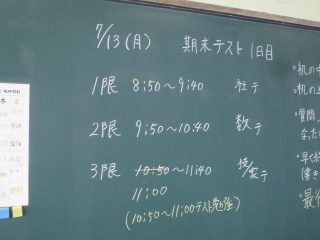 7/13(月) 期末テスト 1日目
1限 8:50～9:40 社テ
2限 9:50～10:40 数テ
3限 10:50～11:40 技/家テ
11:00
(10:50～11:00テスト勉強)
・机の中
・机の
・質問
なった
・早く